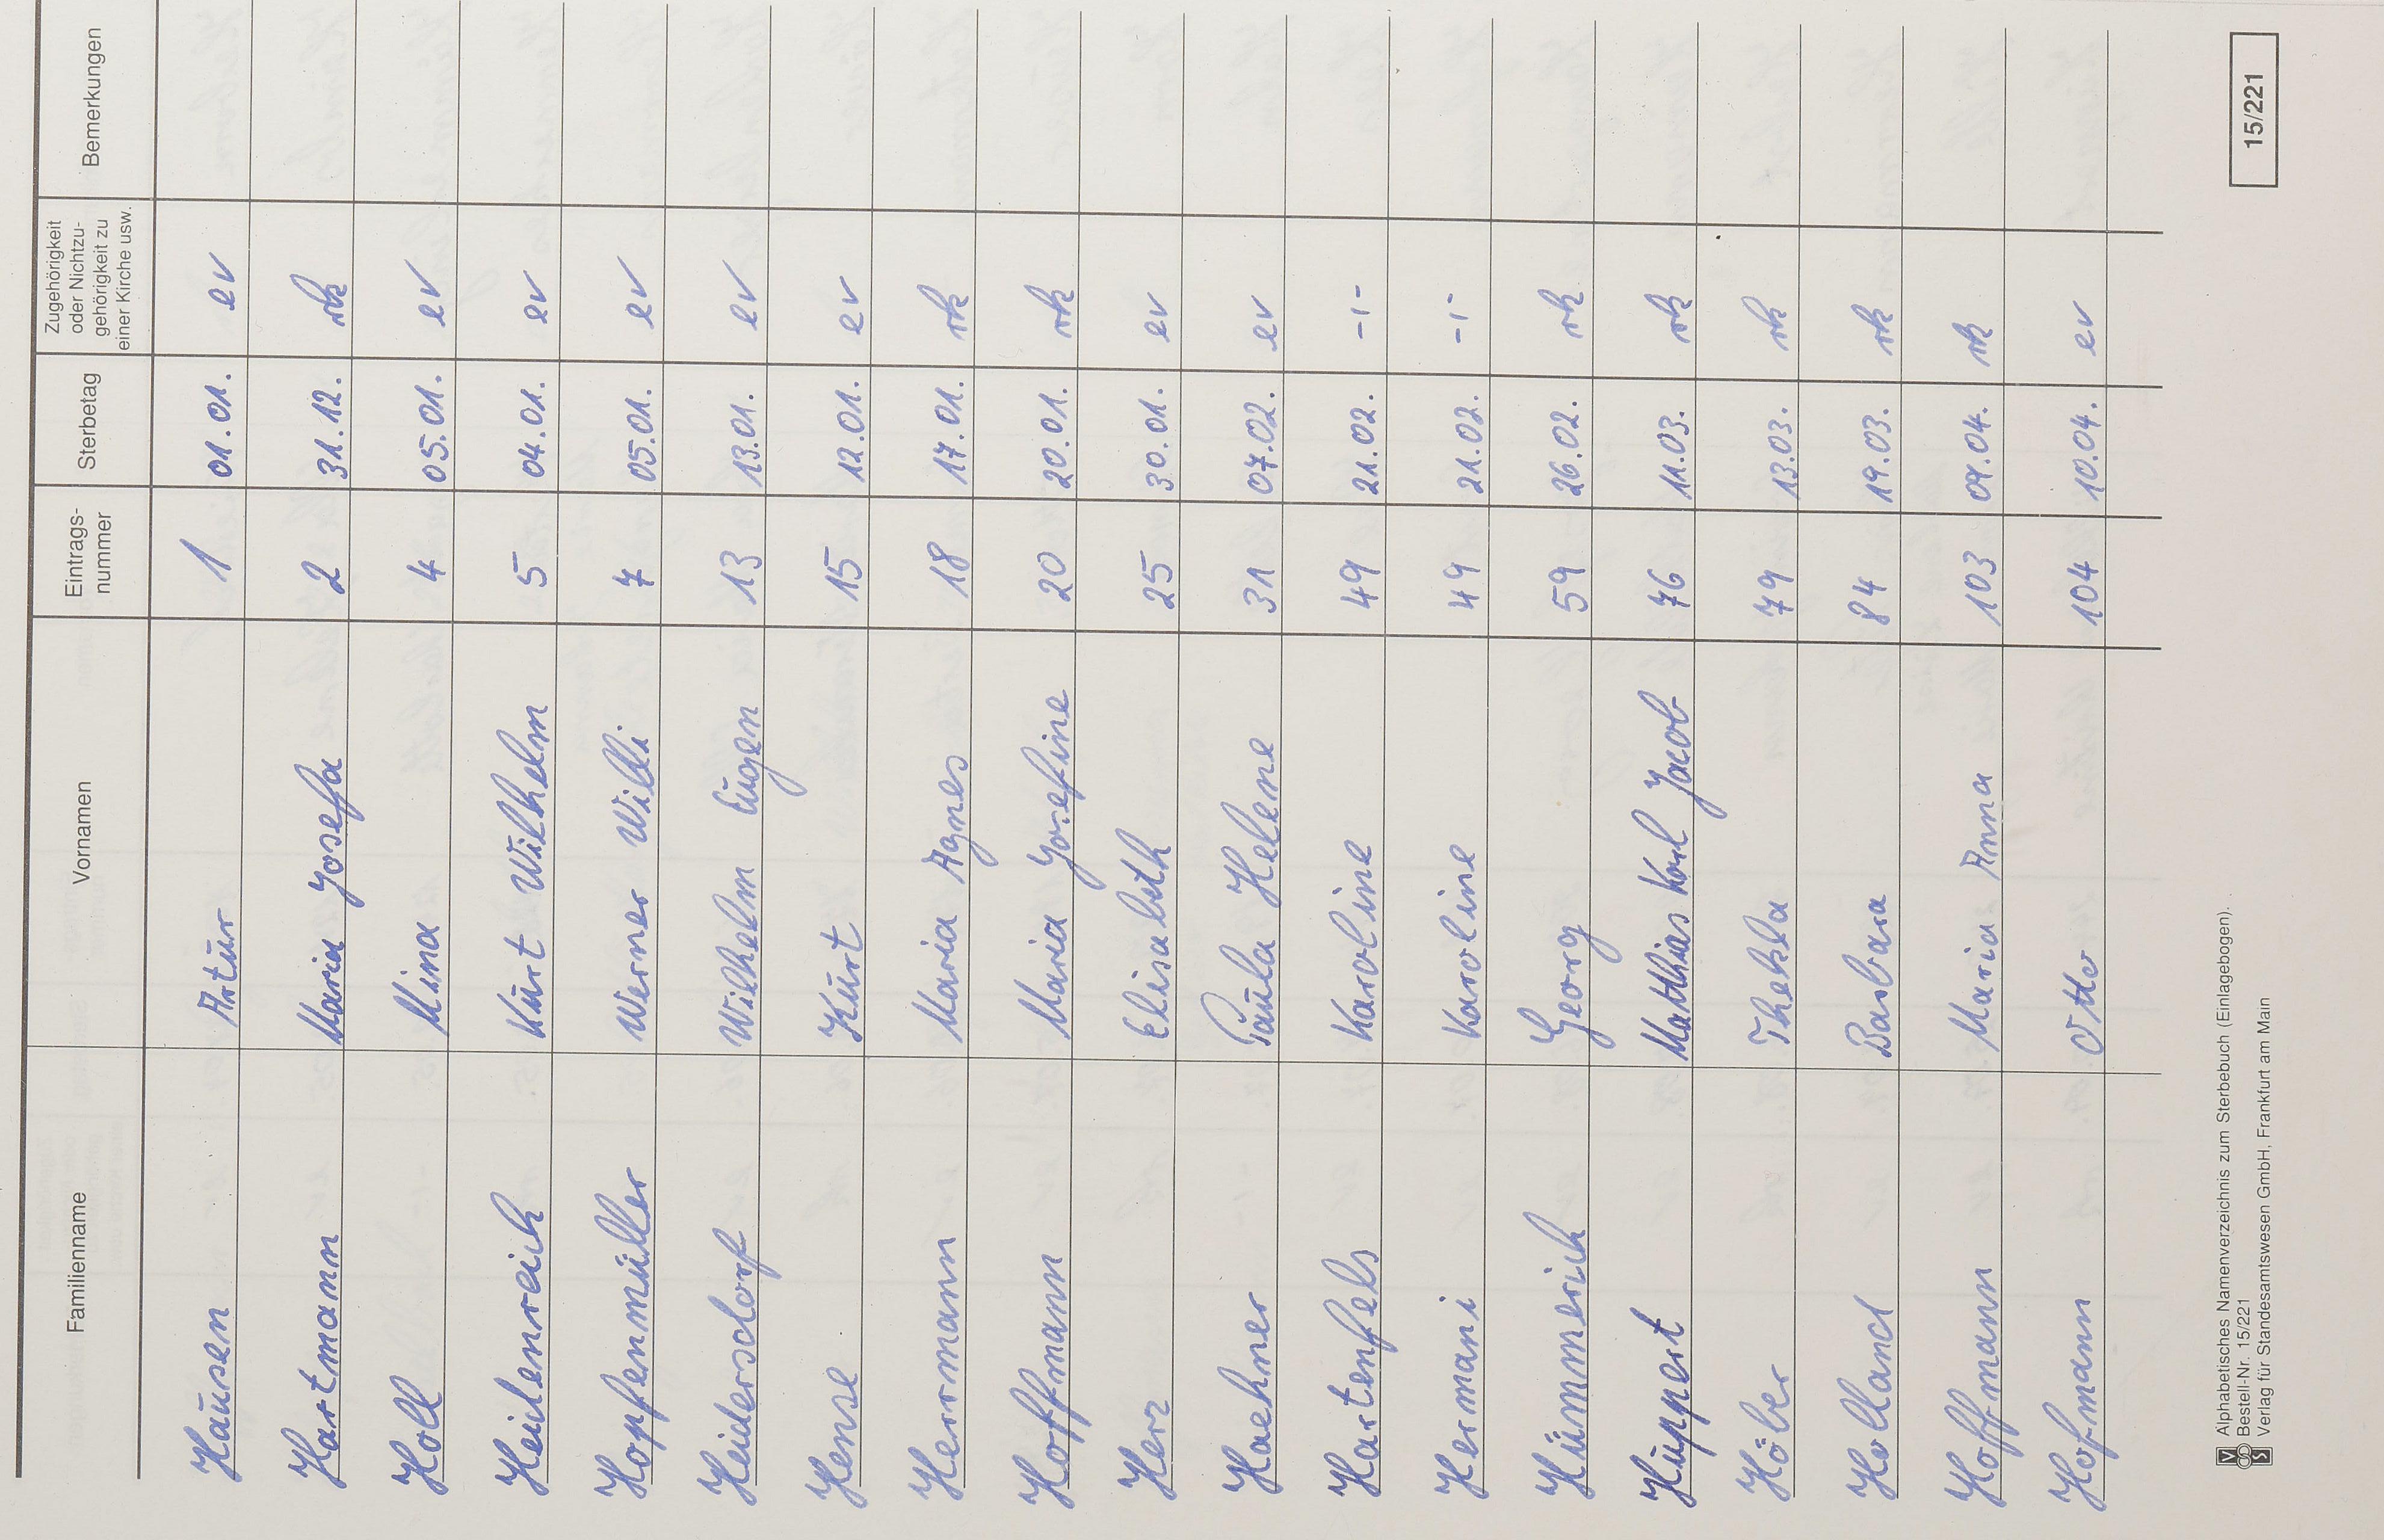 Familienname Vornamen Eintrags-nummer Sterbetag Zugehörigkeit oder Nichtzu-gehörigkeit zu einer Kirche usw. Bemerkungen
Hausen Artur 1 01.01. ev
Hartmann Maria Josefa 2 31.12. rk
Holl Mina 4 05.01. ev
Heidenreich Kurt Wilhelm 5 04.01. ev
Hopfenmüller Werner Willi 7 05.01. ev
Heidersdorf Wilhelm Eugen 13 13.01. ev
Hense Kurt 15 12.01. ev
Herrmann Maria Agnes 18 17.01. rk
Hoffmann Maria Josefine 20 20.01. rk
Herz Elisabeth 25 30.01. ev
Haehner Paula Helene 31 07.02. ev
Hartenfels Karoline 49 21.02. -1-
Hermani Karoline 49 21.02. -1-
Hümmerich Georg 59 26.02. rk
Huppert Matthias Karl Jacob 76 11.03. rk
Höber Thekla 79 13.03. rk
Holland Barbara 84 19.03. rk
Hoffmann Maria Anna 103 09.04. rk
Hofmann Otto 104 10.04. ev
Alphabetisches Namenverzeichnis zum Sterbebuch (Einlagebogen).
Bestell-Nr. 15/221
Verlag für Standesamtswesen GmbH, Frankfurt am Main
15/221